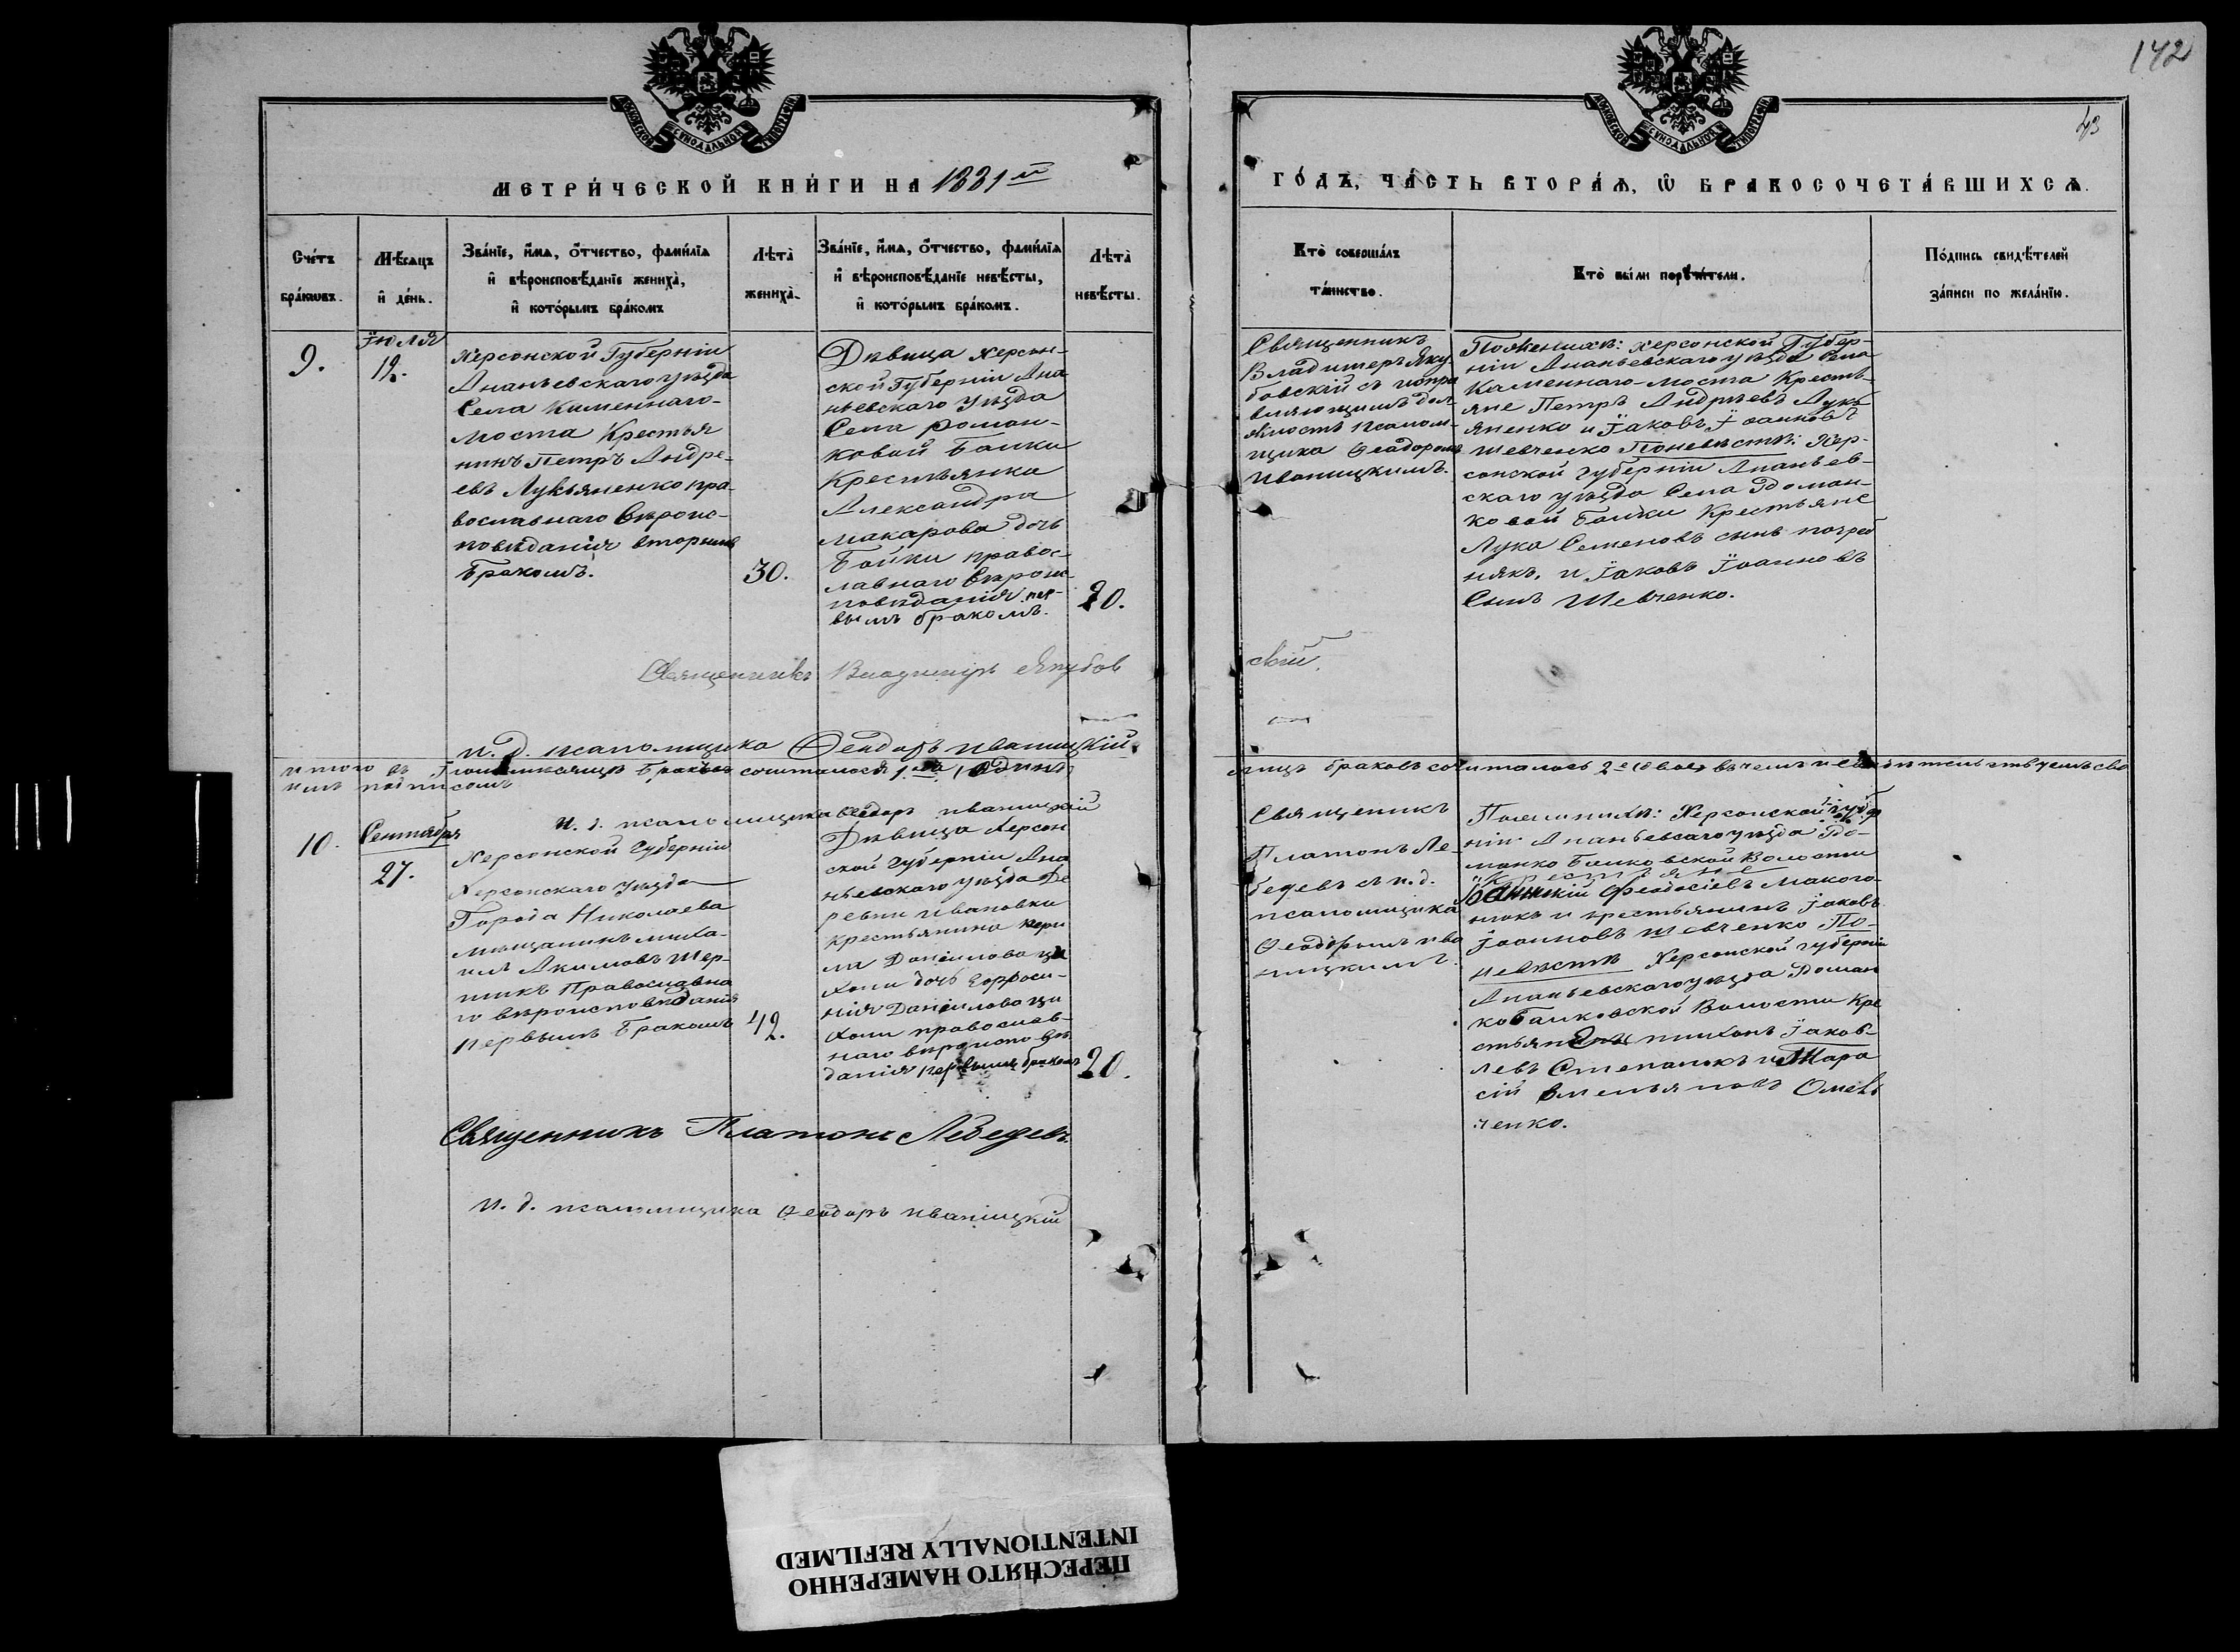 142
43
МОСКОВСКОЙ СѴНОДАЛЬНОЙ ТИПОГРАФІИ
МОСКОВСКОЙ СѴНОДАЛЬНОЙ ТИПОГРАФІИ
МЕТРИ́ЧЕСКОЙ КНИ́ГИ НА 1881й
ГО́ДЪ, ЧА́СТЬ ВТОРА́Ѧ, Ѡ҆ БРАКОСОЧЕТА́ВШИХСѦ.
Сче́тъ
бра́кѡвъ.
Мѣ́сѧцъ
и҆ де́нь.
Зва́нїе, и҆́мѧ, ѻ҆́тчество, фами́лїѧ
и҆ вѣроисповѣ́данїе жениха̀,
и҆ кото́рымъ бра́комъ
Лѣ́та̀
жениха̀.
Зва́нїе, и҆́мѧ, ѻ҆́тчество, фами́лїѧ
и҆ вѣроисповѣ́данїе невѣ́сты,
и҆ кото́рымъ бра́комъ.
Лѣ́та̀
невѣ́сты.
Кто̀ соверша́лъ
та́инство.
Кто̀ бы́ли порꙋчи́тели.
По́дпись свидѣ́телей
за́писи по жела́нїю.
9.
Їюля
12.
Херсонской Губерніи
Ананьевскаго уѣзда
Села Каменнаго-
моста Крестья
нинъ Петръ Андре-
евъ Лукьяненко пра-
вославнаго Вѣроис-
повѣданія вторымъ
бракомъ.
30.
Дѣвица Херсон-
ской Губерніи Ана
ньевскаго уѣзда
Села Доман-
ковой Балки
Крестьянка
Александра
Макарова дочь
Бойки правос-
лавнаго Вѣроис-
повѣданія пер-
вымъ бракомъ.
20.
Священникъ
Владимеръ Яку-
бовскій съ испра
вляющимъ дол-
жность псалом-
щика Ѳеодоромъ
Иваницкимъ.
По женихѣ: Херсонской Губер-
ніи Ананьевскаго уѣзда Села
Каменнаго-моста Кресть-
яне Петръ Андрѣевъ Лукь
яненко и Їаковъ Їоанновъ
Шевченко По невѣстѣ: Хер-
сонской губерніи Ананьев-
скаго уѣзда Села Доман-
ковой Балки Крестьяне
Лука Семеновъ сынъ погреб
някъ. и Їаковъ Їоанновъ
Сынъ Шевченко.
Священникъ Владиміръ Якубов
скій.
и. д. псаломщика Ѳеодоръ Иваницкій.
Итого въ Їюлѣ мѣсяцѣ Браковъ сочиталося 1. (Одинъ)
имъ подписомъ
яицъ браковъ сочиталось 2е (двое) въ чемъ и свидѣтельствуемъ сво
и. д. псаломщика Ѳеодоръ Иваницкій
10.
Сентября
27.
Херсонской Губерніи
Херсонскаго уѣзда
Города Николаева
мѣщанинъ миха-
илъ Акимовъ Шер-
Православна
го вѣроисповѣданія
первымъ Бракомъ
42.
Дѣвица Херсон
ской губерніи Ана
ньевскаго уѣзда Де
ревни Ивановки
крестьянина
Даніилова
дочь Евфроси-
нія Даніилова
православ-
наго вѣроисповѣ
данія первымъ бракомъ
20.
Священикъ
Платонъ Ле-
бедевъ съ и. д.
псаломщика
Ѳеодоромъ ива
ницкимъ.
По женихѣ: Херсонской губер
ніи Ананьевскаго уѣзда До-
манко Балковской Волости
Крестьяне
Феодосіевъ Макого-
нюкъ и крестьянинъ Їаковъ
Їоанновъ Шевченко По-
невѣстѣ Херсонской губерніи
Ананьевскаго уѣзда Доман
коБалковской Волости Кре
стьяне тихонъ Їаков-
левъ Степанюкъ и Тара
сій Омель
ченко.
Священникъ Платонъ Лебедевъ.
и. д. псаломщика Ѳеодоръ иваницкій
ПЕРЕСНЯТО НАМЕРЕННО
INTENTIONALLY REFILMED